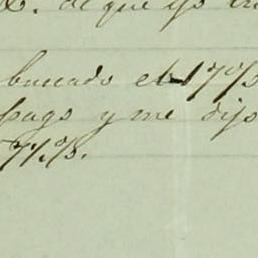 de que yo
buscado el 17%
pago y me dijo
77%.